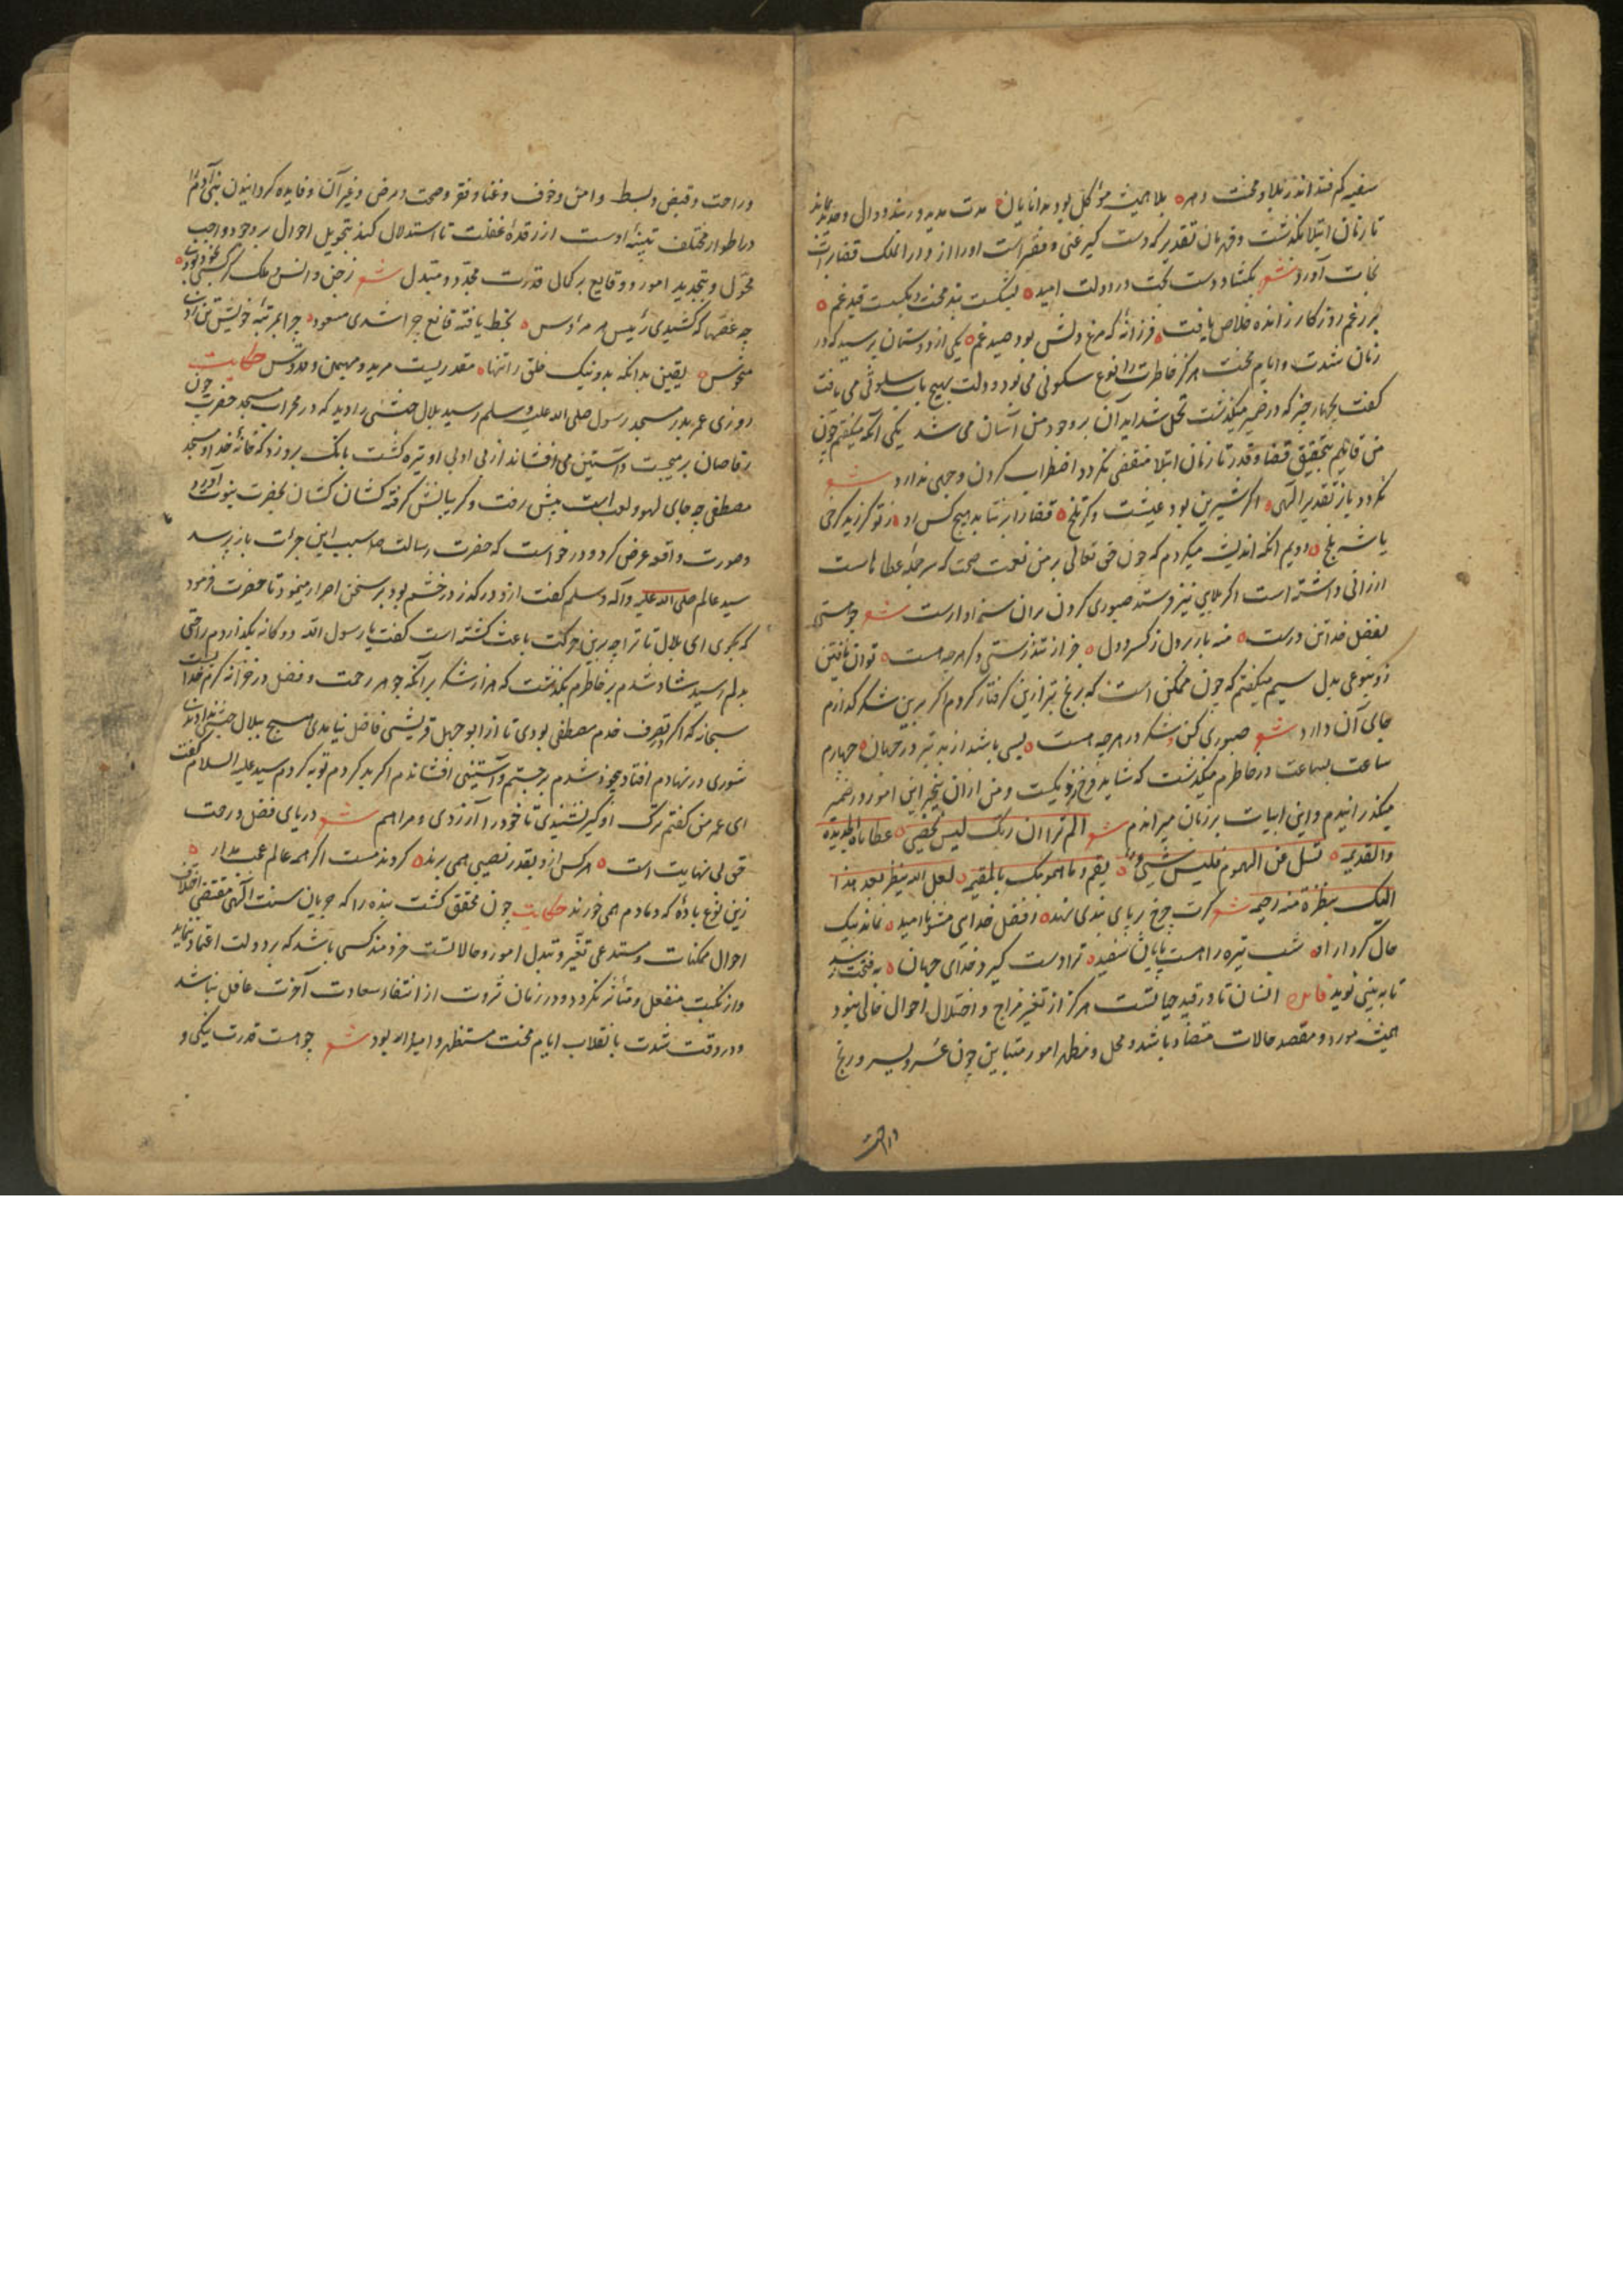 سفیه کم فتد اندر بلا و محنت دهر ه بلا همیشه موکل بود بدانایان ه مدت مدید در شدو دال و بماند
تا زمان ابتلا بگذشت و قهرمان تقدیر که دست گیر غنی و فقیر است او را از و در املک قضا برات
نجات آورد شعر بگشاد دست بخت در دولت امید ه بشکست بند محنت و بگسست قید غم ه
بر رغم روزگار ز انده خلاص یافت ه فرزانه که مرغ دلش بود صید غم ه یکی از دوستان پرسید که در
زمان شدت و ایام محنت هرگز خاطرت را نوع سکونی می بود و دولت بهیچ باب سلوتی می یافت
گفت بچهار چیز که در ضمیر میگذشت تحمل شداید آن بر وجود من آسان می شد یکی آنکه میگفتم چون
من قایلم بتحقیق قضا و قدر تا زمان ابتلا منقضی نگردد اضطراب کردن وجهی ندارد شعر
نگردد باز تقدیر الهی ه اگر شیرین بود عیشت و گر تلخ ه قضا را بر نتابد هیچ کس راه ز تو گر زید کرخی
یا شه بلخ ه دویم آنکه اندیشه میکردم که چون حق تعالی بر من نعمت صحت که سر جمله عطاهاست
ارزانی داشته است اگر بلایی نیز فرستد صبوری کردن بران سزاوارست شعر چو هستی
بفضل خدا تن درست ه منه بار بر دل ز کسر و دل ه جز از تندرستی و هر چه هست ه توان یافتن
زو بنوعی بدل سیم میگفتم که چون ممکن است که برنج بتر ازین گرفتار گردم اگر برین شکر گذارم
جای آن دارد شعر صبوری کن و شکر در هر چه هست ه بسی باشد از بد بتر در جهان ه چهارم
ساعت بساعت در خاطرم میگذشت که شاید فرخ نزدیکست و من ازان بیخبر این امور در ضمیر
میگذرانیدم و این ابیات بر زبان میراندم شعر الم تر ان ربک لیس یحصی ه عطایاه الجدیده
والقدیمه ه تسل عن الهموم فلیس شیئ ه یقیم و ما همومک بالمقیمه ه لعل الله ینظر بعد هذا
الیک بنظرة منه رحیمه شعر گرت چرخ بر پای بندی نهد ه ز فضل خدای مشو ناامید ه نماند بیک
حال کردار او ه شب تیره را هست پایان سفید ه ترا دست گیرد خدای جهان ه
تا به بینی نوید فایده انسان تا در قید حیاتست هرگز از تغیر مزاج و اختلال احوال خالی نبود
همیشه مورد و مقصد حالات متضاد باشد و محل و مظهر امور متباین چون عسر و یسر و رنج
وراحت
و راحت و قبض و بسط و امن و خوف و غنا و فقر و صحت و مرض و غیر آن و فایده گردانیدن بنی آدم را
در اطوار مختلف تنبیه اوست از رقدۀ غفلت تا استدلال کند بتحویل احوال بر وجود واجب
محول و بتجدید امور و وقایع بر کمال قدرت مجدد و متبدل شعر ز جن و انس و ملک گر کسی بخود بودی ه
چه غصها که کشیدی رئیس مر مرئوس ه بخط یافته قانع چرا شدی مسعود ه چرا بمرتبه خویش تن زدی
منحوس ه یقین بدانکه بدونیک خلق را تنها ه مقدریست مرید و مهیمن و قدوس حکایت
روزی عمر بدر مسجد رسول صلی الله علیه وسلم رسید بلال حبشی را دید که در محراب مسجد حضرت چون
رقاصان بر میجست و آستین می افشاند از بی ادبی او تیره گشت بانگ بروزد که خانۀ خدا و مسجد
مصطفی چه جای لهو و لعب است پیش رفت و گریبانش گرفته کشان کشان بحضرت نبوت آورد
و صورت واقعه عرض کرد و درخواست که حضرت رسالت ص سبب این جرات باز پرسد
سید عالم صلی الله علیه و آله وسلم گفت ازو درگذر در خشم بود بر سخن اصرار مینمود تا حضرت فرمود
که بگوی ای بلال تا ترا چه برین حرکت باعث گشته است گفت یا رسول الله دوگانه بگذاردم راحتی
بدلم رسید شاد شدم بر خاطرم بگذشت که هزار شکر بر آنکه جوهر رحمت و فضل در خزانه کرم خدا
سبحانه که اگر تصرف خدم مصطفی بودی تا از ابو جهل قریشی فاضل نیامدی هیچ ببلال حبشی ندادندی
شوری در نهادم افتاد بیخود شدم بر جستم و آستینی افشاندم اگر بد کردم توبه کردم سید علیه السلام گفت
ای عمر من گفتم ترک او گیر نشنیدی تا خود را آزردی و مرا هم شعر دریای فضل و رحمت
حق بی نهایت است ه هر کس ازو بقدر نصیبی همی برند ه گردند مست اگر همه عالم عجب مدار ه
زین نوع باده که دمادم همی خورند حکایت چون محقق گشت بنده را که جریان سنت الهی مقتضی اختلاف
احوال ممکنات و مستدعی تغیر و تبدل امور و حالاتست خردمند کسی باشد که بر دولت اعتماد ننماید
و از نکبت منفعل و متأثر نگردد و در زمان ثروت از انتفاء سعادت آخرت غافل نباشد
و در وقت شدت بانقلاب ایام محنت مستظهر و امیدوار بود شعر چو هست قدرت نیکی و